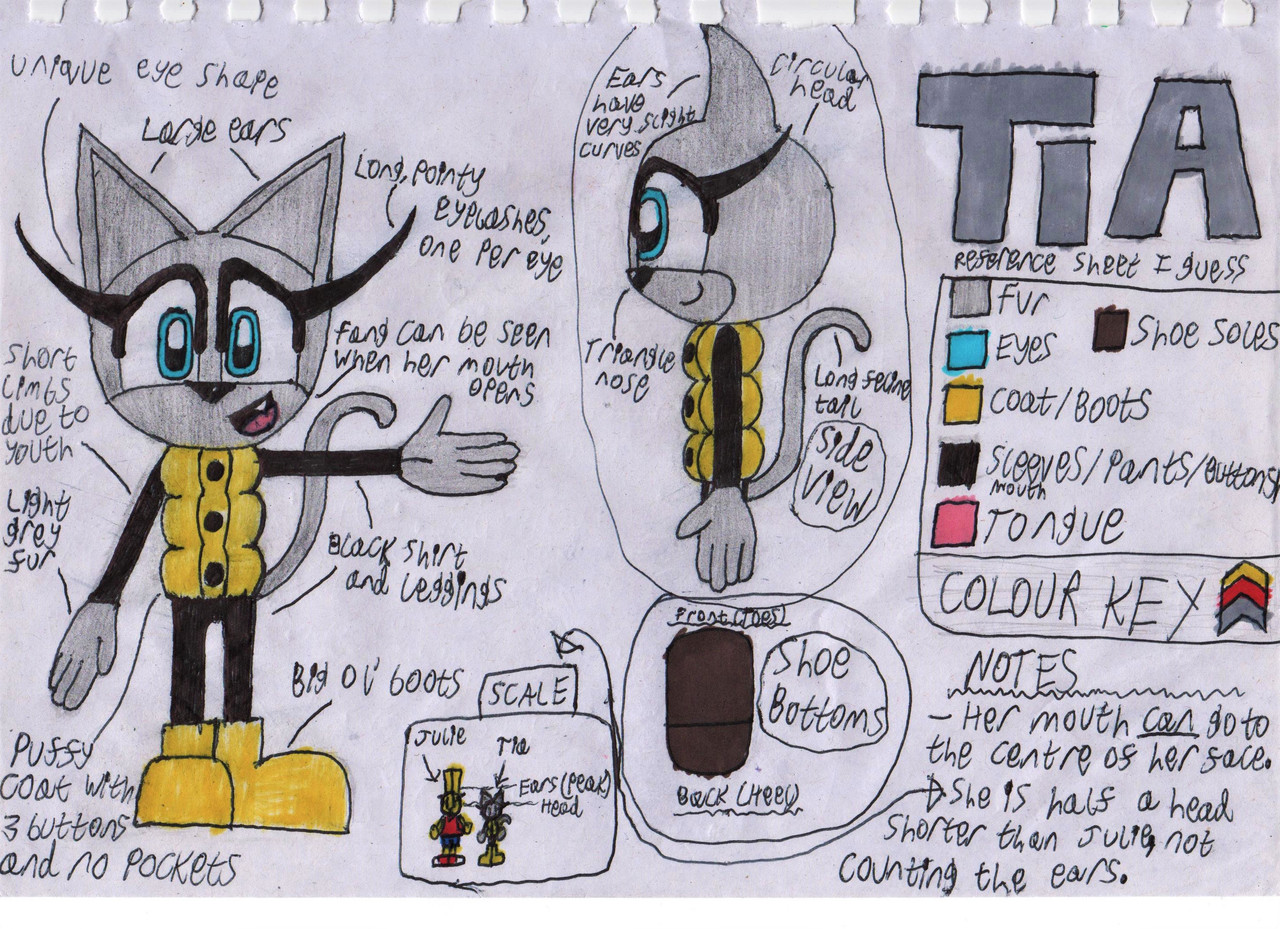 unique eye shape
Large ears
Long, pointy
eyelashes,
one per eye
Fang can be seen
when her mouth
opens
Short
limbs
due to
youth
Light
grey
fur
Black shirt
and leggings
Big Ol' boots
Puffy
coat with
3 buttons
and no pockets
Ears
have
very slight
curves
Circular
head
Triangle
nose
Long feline
tail
Side
View
Front (Toes)
Shoe
Bottoms
Back (Heel)
SCALE
Julie
Tia
Ears (Peak)
Head
TiA
Reference sheet I guess
Fur
Shoe Soles
Eyes
Coat/Boots
Sleeves/Pants/Buttons/
mouth
Tongue
COLOUR KEY
NOTES
- Her mouth can go to
the centre of her face.
She is half a head
shorter than Julie, not
counting the ears.